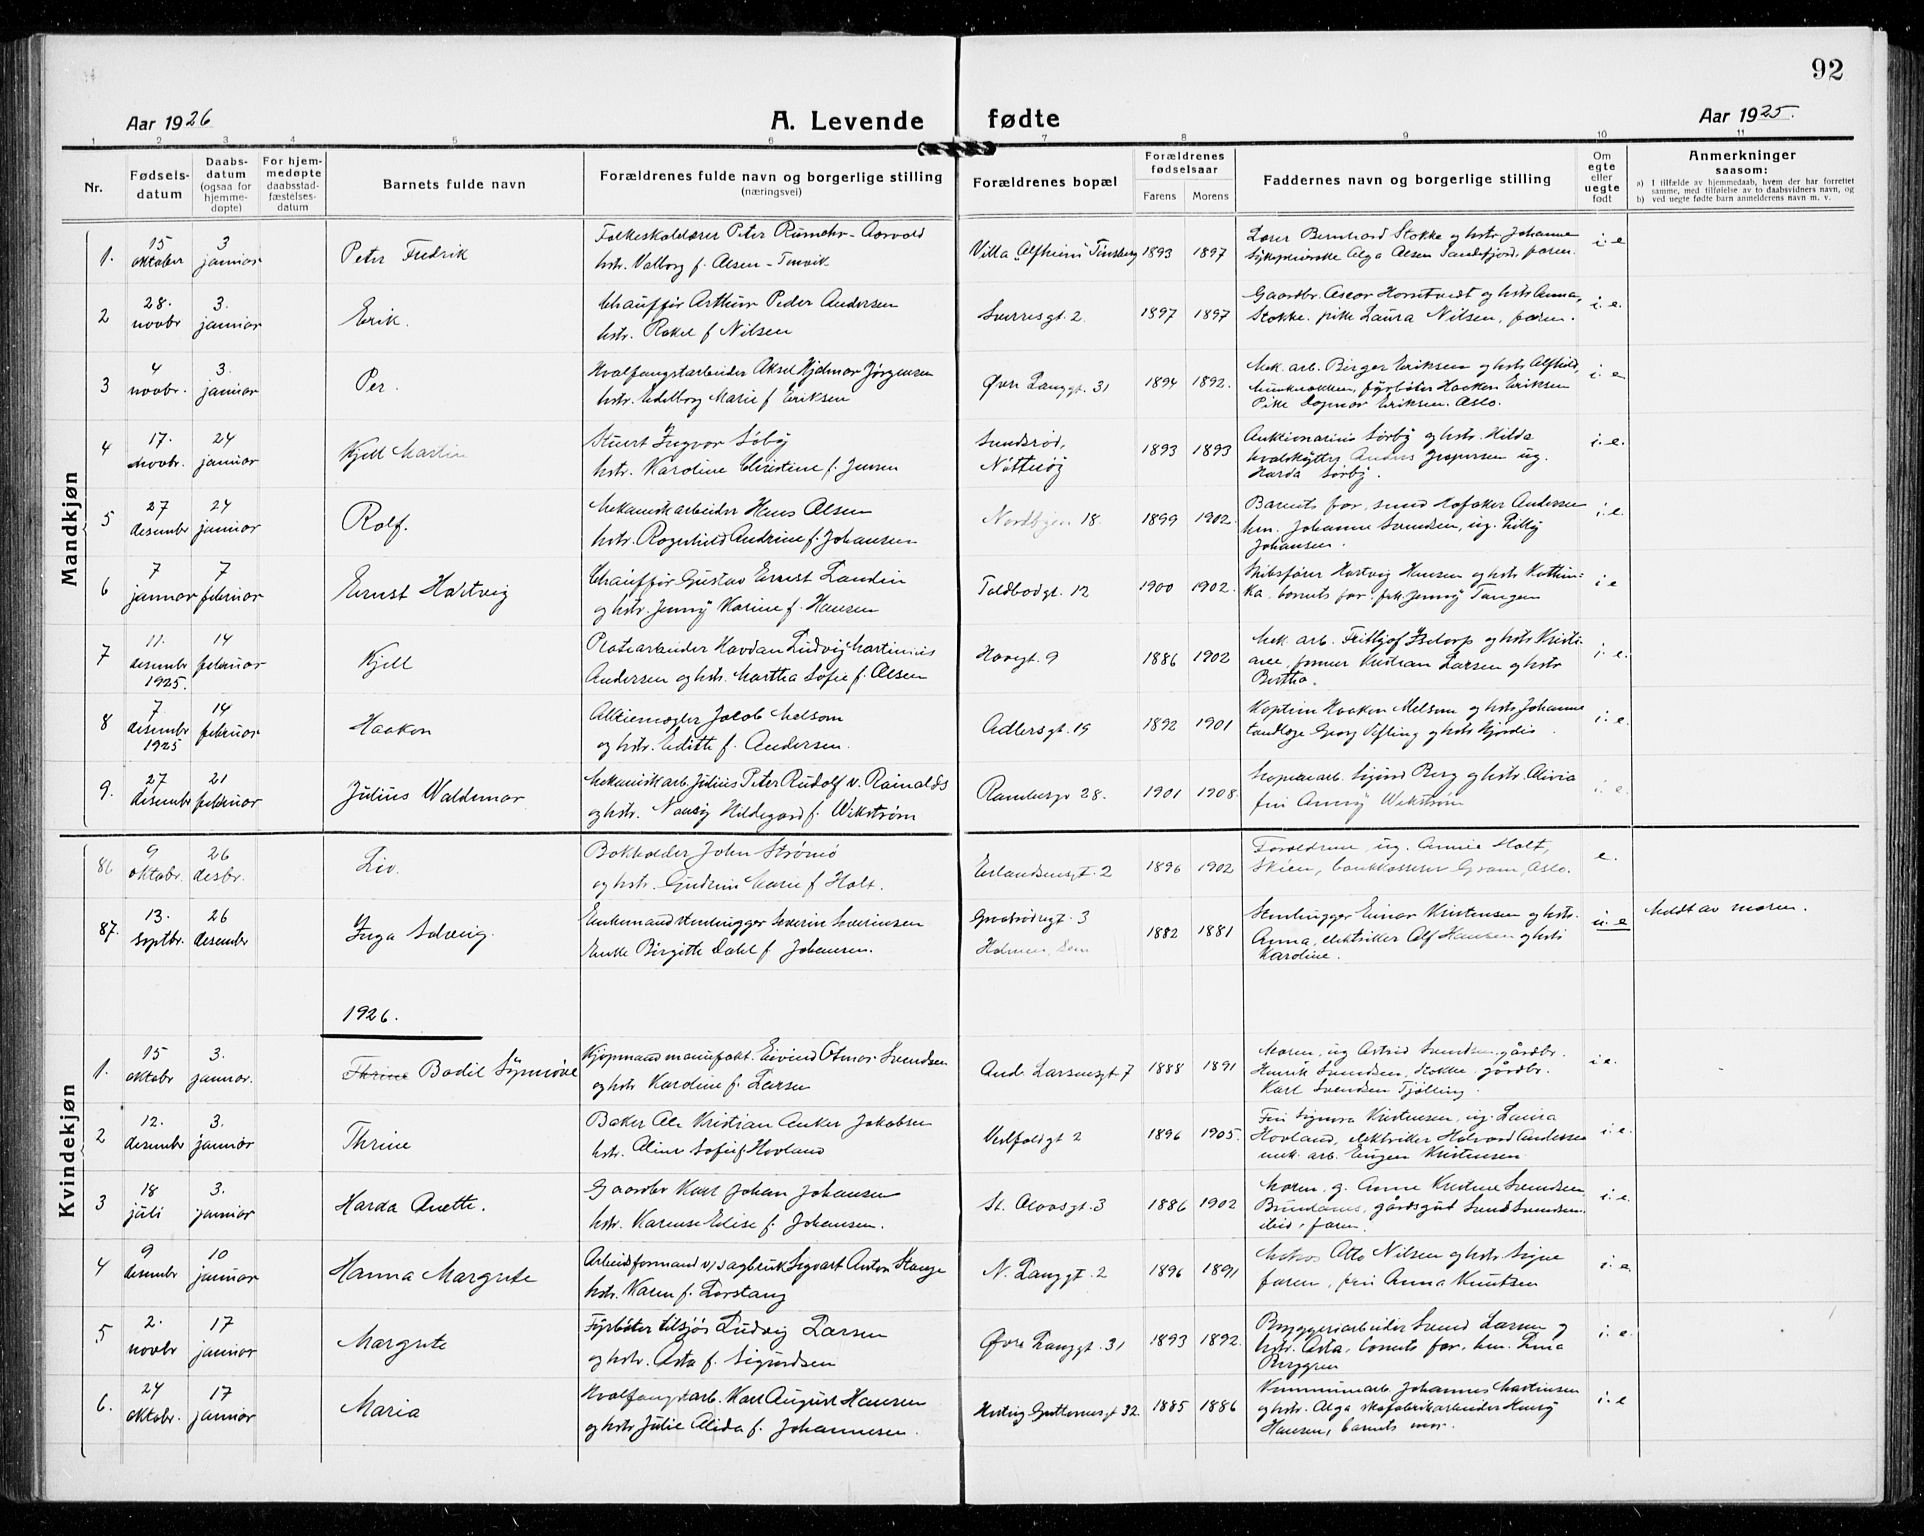 92
Aar 1926
A. Levende fødte
Aar 1925.
1 2 3 4 5 6 7 8 9 10 11
Nr.
Fødsels-
datum
Daabs-
datum
(ogsaa for
hjemme-
døpte)
For hjem-
medøpte
daabsstad-
fæstelses-
datum
Barnets fulde navn
Forældrenes fulde navn og borgerlige stilling
(næringsvei)
Forældrenes bopæl
Forældrenes
fødselsaar
Farens
Morens
Faddernes navn og borgerlige stilling
Om
egte
eller
uegte
født
Anmerkninger
saasom:
a) I tilfælde av hjemmedaab, hvem der har forrettet
samme, med tilføielse av to daabsvidners navn, og
b) ved uegte fødte barn anmelderens navn m. v.
Mandkjøn
1.
15
oktober
3
januar
Peter Fredrik
Folkeskolelærer Peter
hstr. Valborg f. Olsen
Villa "Alfheim" Tønsberg
1893
1897
Lærer Bernhard Stokke og hstr. Johanne
Sykepleierske Olga Olsen Sandefjord, faren.
i. e
2
28.
novbr
3.
januar
Erik.
Chauffør Arthur Peder Andersen
hstr. Rakel f Nilsen
Sverresgt. 2.
1897
1897
Gaardbr. Oscar Horntvedt og hstr Anna,
Stokke. pike Laura Nilsen, faren.
i. e.
3
4
novbr.
3.
januar
Per.
Hvalfangstarbeider Aksel Hjalmar Jørgensen
hstr. Edelborg Marie f Eriksen
Øvre Langgt. 31
1894
1892.
Mek. arb. Birger Eriksen og hstr Alfhild,
fyrbøter Haakon Eriksen
Pike Dagmar Eriksen. Oslo.
i. e
4
17.
novbr.
24
januar
Kjell Martin
Stuert Ingvar Søby
hstr. Karoline Christine f. Jensen
Nøtterøy
1893
1893
Auktionarius Sørby og hstr. Hilda
hvalskytter Anders Jespersen ug.
Harda Sørby.
i. e.
5
27
desembr
24
januar
Rolf.
Mekanisk arbeider Hans Olsen
hstr. Ragnhild Andrine f. Johansen
Nordbyen 18.
1899
1902.
Barnets far, smed Andersen
hm. Johanne Svendsen, ug.
Johansen.
i. e.
6
7
januar
7
februar
Ernst Hartvig
Chauffør Gustav Ernst Landin
og hstr. Jenny Karine f. Hansen
Toldbodgt. 12
1900
1902.
Skibsfører Hartvig Hansen og hstr Kathin-
ka, barnets far. frk. Jenny Tangen
i. e
7
11.
desembr
1925.
14
februar
Kjell
Ludvig Martinius
Andersen og hstr. Martha Sofie f. Olsen
1886
1902
Mek. arb. Fritjof og hstr Kristi-
ane, former Kristian Larsen og hstr
Bertha.
i. e.
8
7.
desembr
1925
14
februar
Haakon
Aktiemegler Jacob Melsom
og hstr. Edith f. Andersen.
Adlersgt. 19
1892
1901
Kaptein Haakon Melsom og hstr Johanne
tandlæge Georg og hstr Hjørdis
i. e.
9.
27
desembr
21
februar
Julius Waldemar
Mekanisk arb. Julius Peter Rudolf v. Rainalds
og hstr. Nancy Hildegard f. Wikstrøm
Rambergv 28.
1901
1908.
Berg og hstr. Olivia
fru Wikstrøm
i. e.
Kvindekjøn
86
9
oktobr.
26
desbr.
Liv.
Bokholder John Strømø
og hstr. Gudrun Marie f Holt.
Erlandsensgt. 2
1896
1902
Forældrene, ug. Annie Holt,
Skien, bankkasserer Gram, Oslo.
e.
87.
13.
septbr.
26
desembr
Inga Solveig.
Enkemand stenhugger Severin Severinsen
Enke Birgitte Dahl f. Johansen.
3
Holmen, Sem
1882
1881
Stenhugger Einar Kristensen og hstr.
Anna, elektriker Alf Hansen og hstr
Karoline.
u. e
Meldt av moren.
1926.
1.
15
oktobr
3.
januar.
Thrine Bodil Synnøve
Kjøpmand manufakt. Eivind Otmar Svendsen
og hstr Karoline f. Larsen
And. Larsensgt 7
1888
1891
Moren, ug Astrid Svendsen, gårdbr.
Henrik Svendsen, Stokke. gårdbr.
Karl Svendsen Tjølling.
i. e.
2
12.
desembr
3.
januar
Thrine
Baker Ole Kristian Anker Jakobsen
hstr. Aline Sofie f. Hovland
Vestfoldgt 2
1896
1905.
Fru Signora Kristensen, ug. Laura
Hovland, elektriker Halvard Andersen
mek. arb. Eugen Kristensen.
i. e.
3
18
juli
3.
januar
Harda Anette.
Gaardbr Karl Johan Johansen
hstr. Karense Elise f. Johansen.
St. Olavsgt. 3
1886
1902
Moren, g. Anne Kristine Svendsen
gårdsgut Svend Svendsen
ibid, faren.
i. e.
4
9
desembr
10
januar
Hanna Margrete
Arbeidsformand v/ sagbruk Sigvart Anton Hauge
hstr. Karen f. Lorslang
N. Langgt. 2
1896
1891
Otto Nilsen og hstr. Signe
faren, fru Anna Knutsen
i. e.
5
2.
novbr
17
januar
Margrete
Fyrbøter tilsjøs Ludvig Larsen
og hstr. Asta f. Sigurdsen
Øvre Langgt. 31
1893
1892.
Bryggeriarbeider Svend Larsen og
hstr. Asta, barnets far, hm. Lina
Berggren
i. e.
6.
24
oktobr.
17
januar
Maria
Hvalfangstarb. Karl August Hansen
og hstr Julie Alida f. Johannesen.
Hertug Guttormsgt 32.
1885
1886
Kommunearb. Johannes Martinsen
og hstr. Olga skofabrikarbeider Henry
Hansen, barnets mor.
i. e